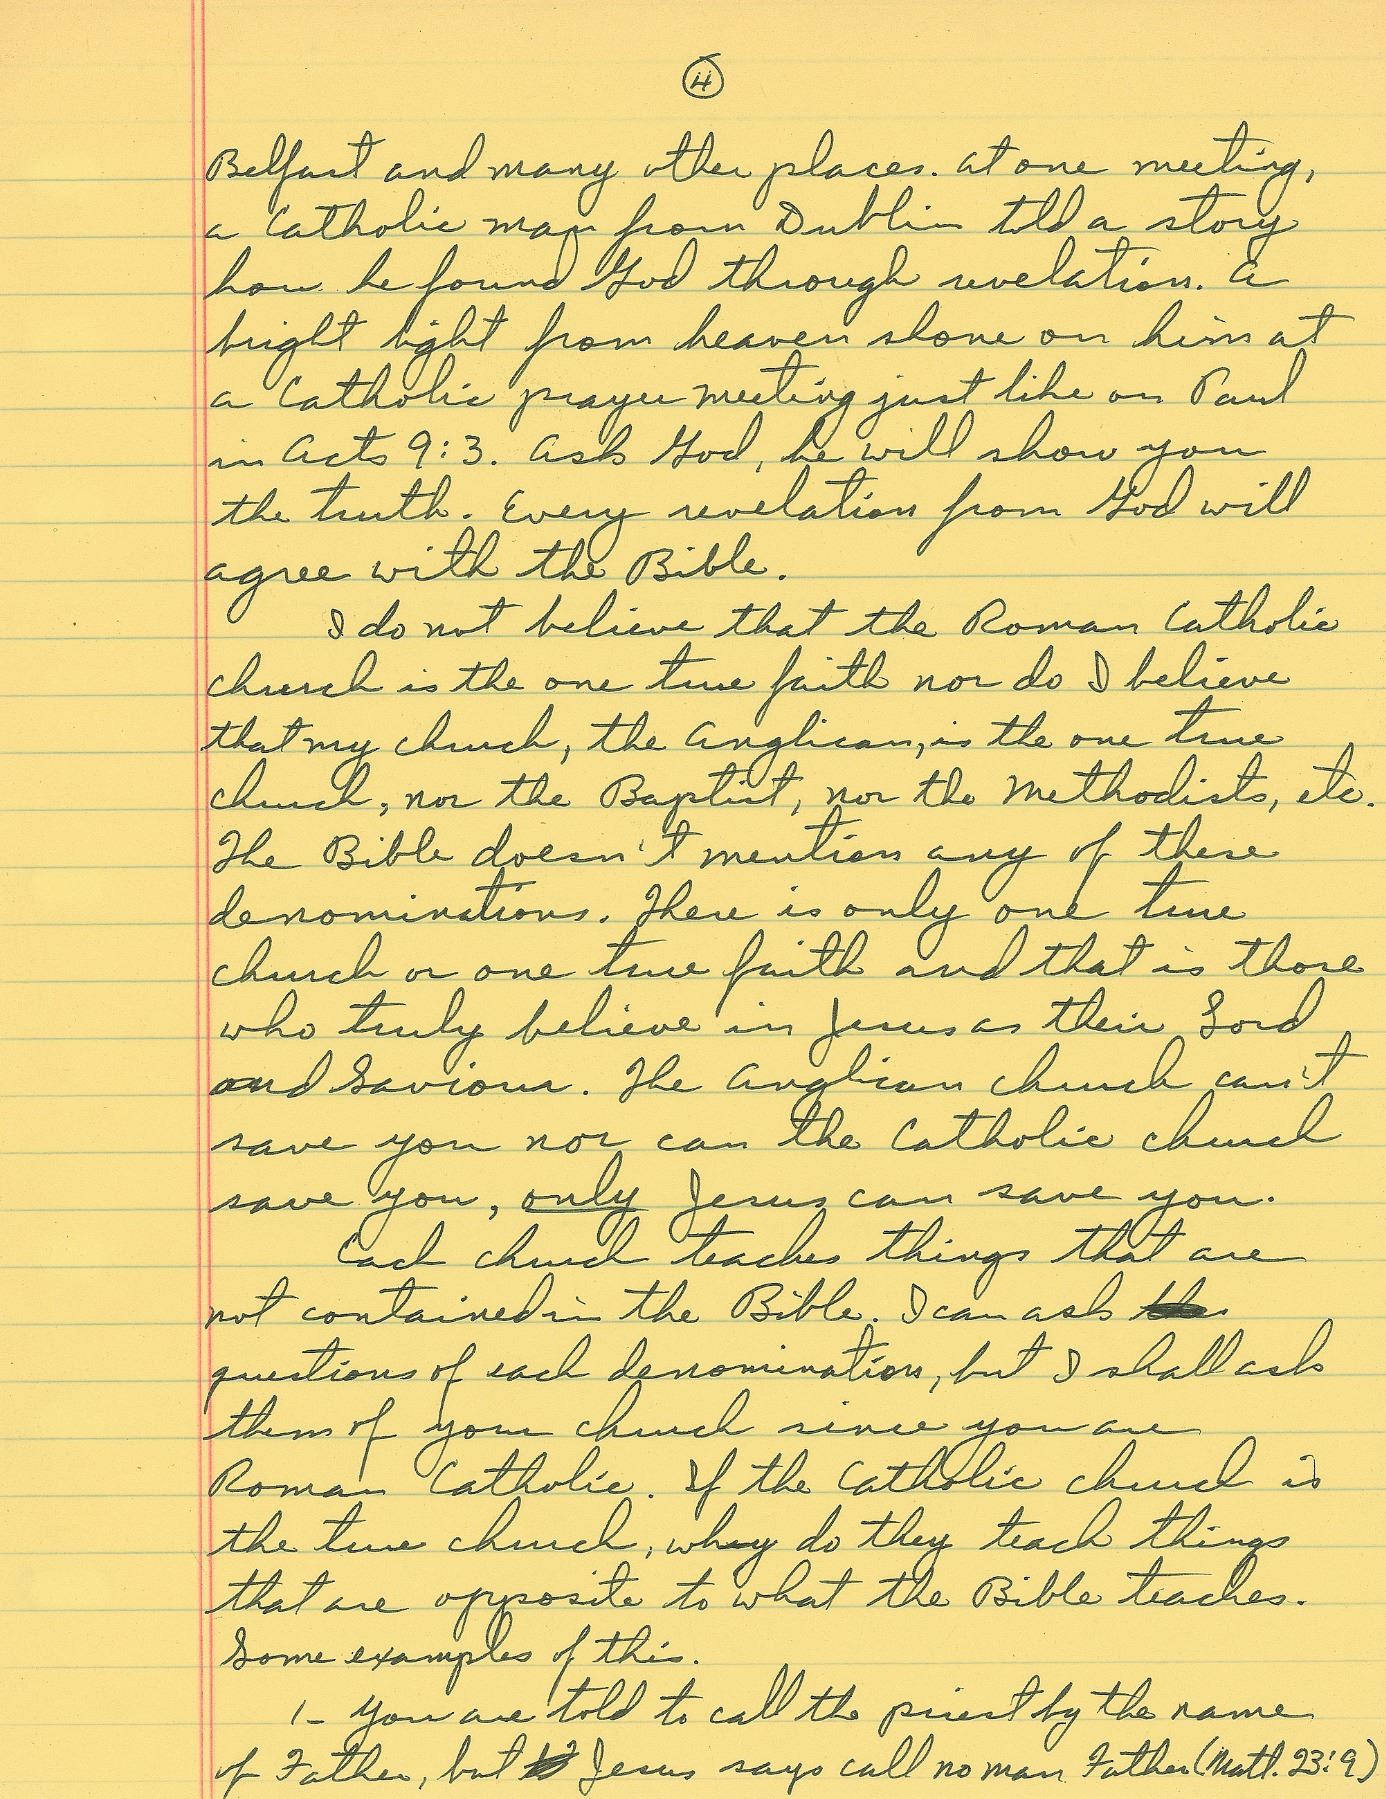 4
Belfast and many other places. At one meeting,
a Catholic man from Dublin told a story
how he found God through revelation. A
bright light from heaven shone on him at
a Catholic prayer meeting just like on Paul
in Acts 9:3. Ask God, he will show you
the truth. Every revelation from God will
agree with the Bible.
I do not believe that the Roman Catholic
church is the one true faith nor do I believe
that my church, the Anglican, is the one true
church, nor the Baptist, nor the Methodists, etc.
The Bible doesn't mention any of these
denominations. There is only one true
church or one true faith and that is those
who truly believe in Jesus as their Lord
and Saviour. The Anglican church can't
save you nor can the Catholic church
save you, only Jesus can save you.
Each church teaches things that are
not contained in the Bible. I can ask
questions of each denomination, but I shall ask
them of your church since you are
Roman Catholic. If the Catholic church is
the true church, why do they teach things
that are opposite to what the Bible teaches.
Some examples of this.
1- You are told to call the priest by the name
of Father, but Jesus says call no man Father (Matt. 23:9)